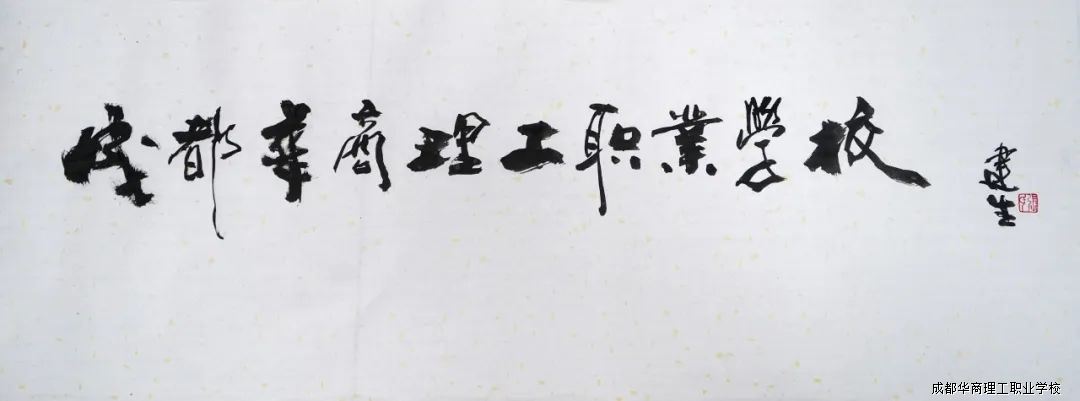 成都华商理工职業學校
建生
成都华商理工职业学校